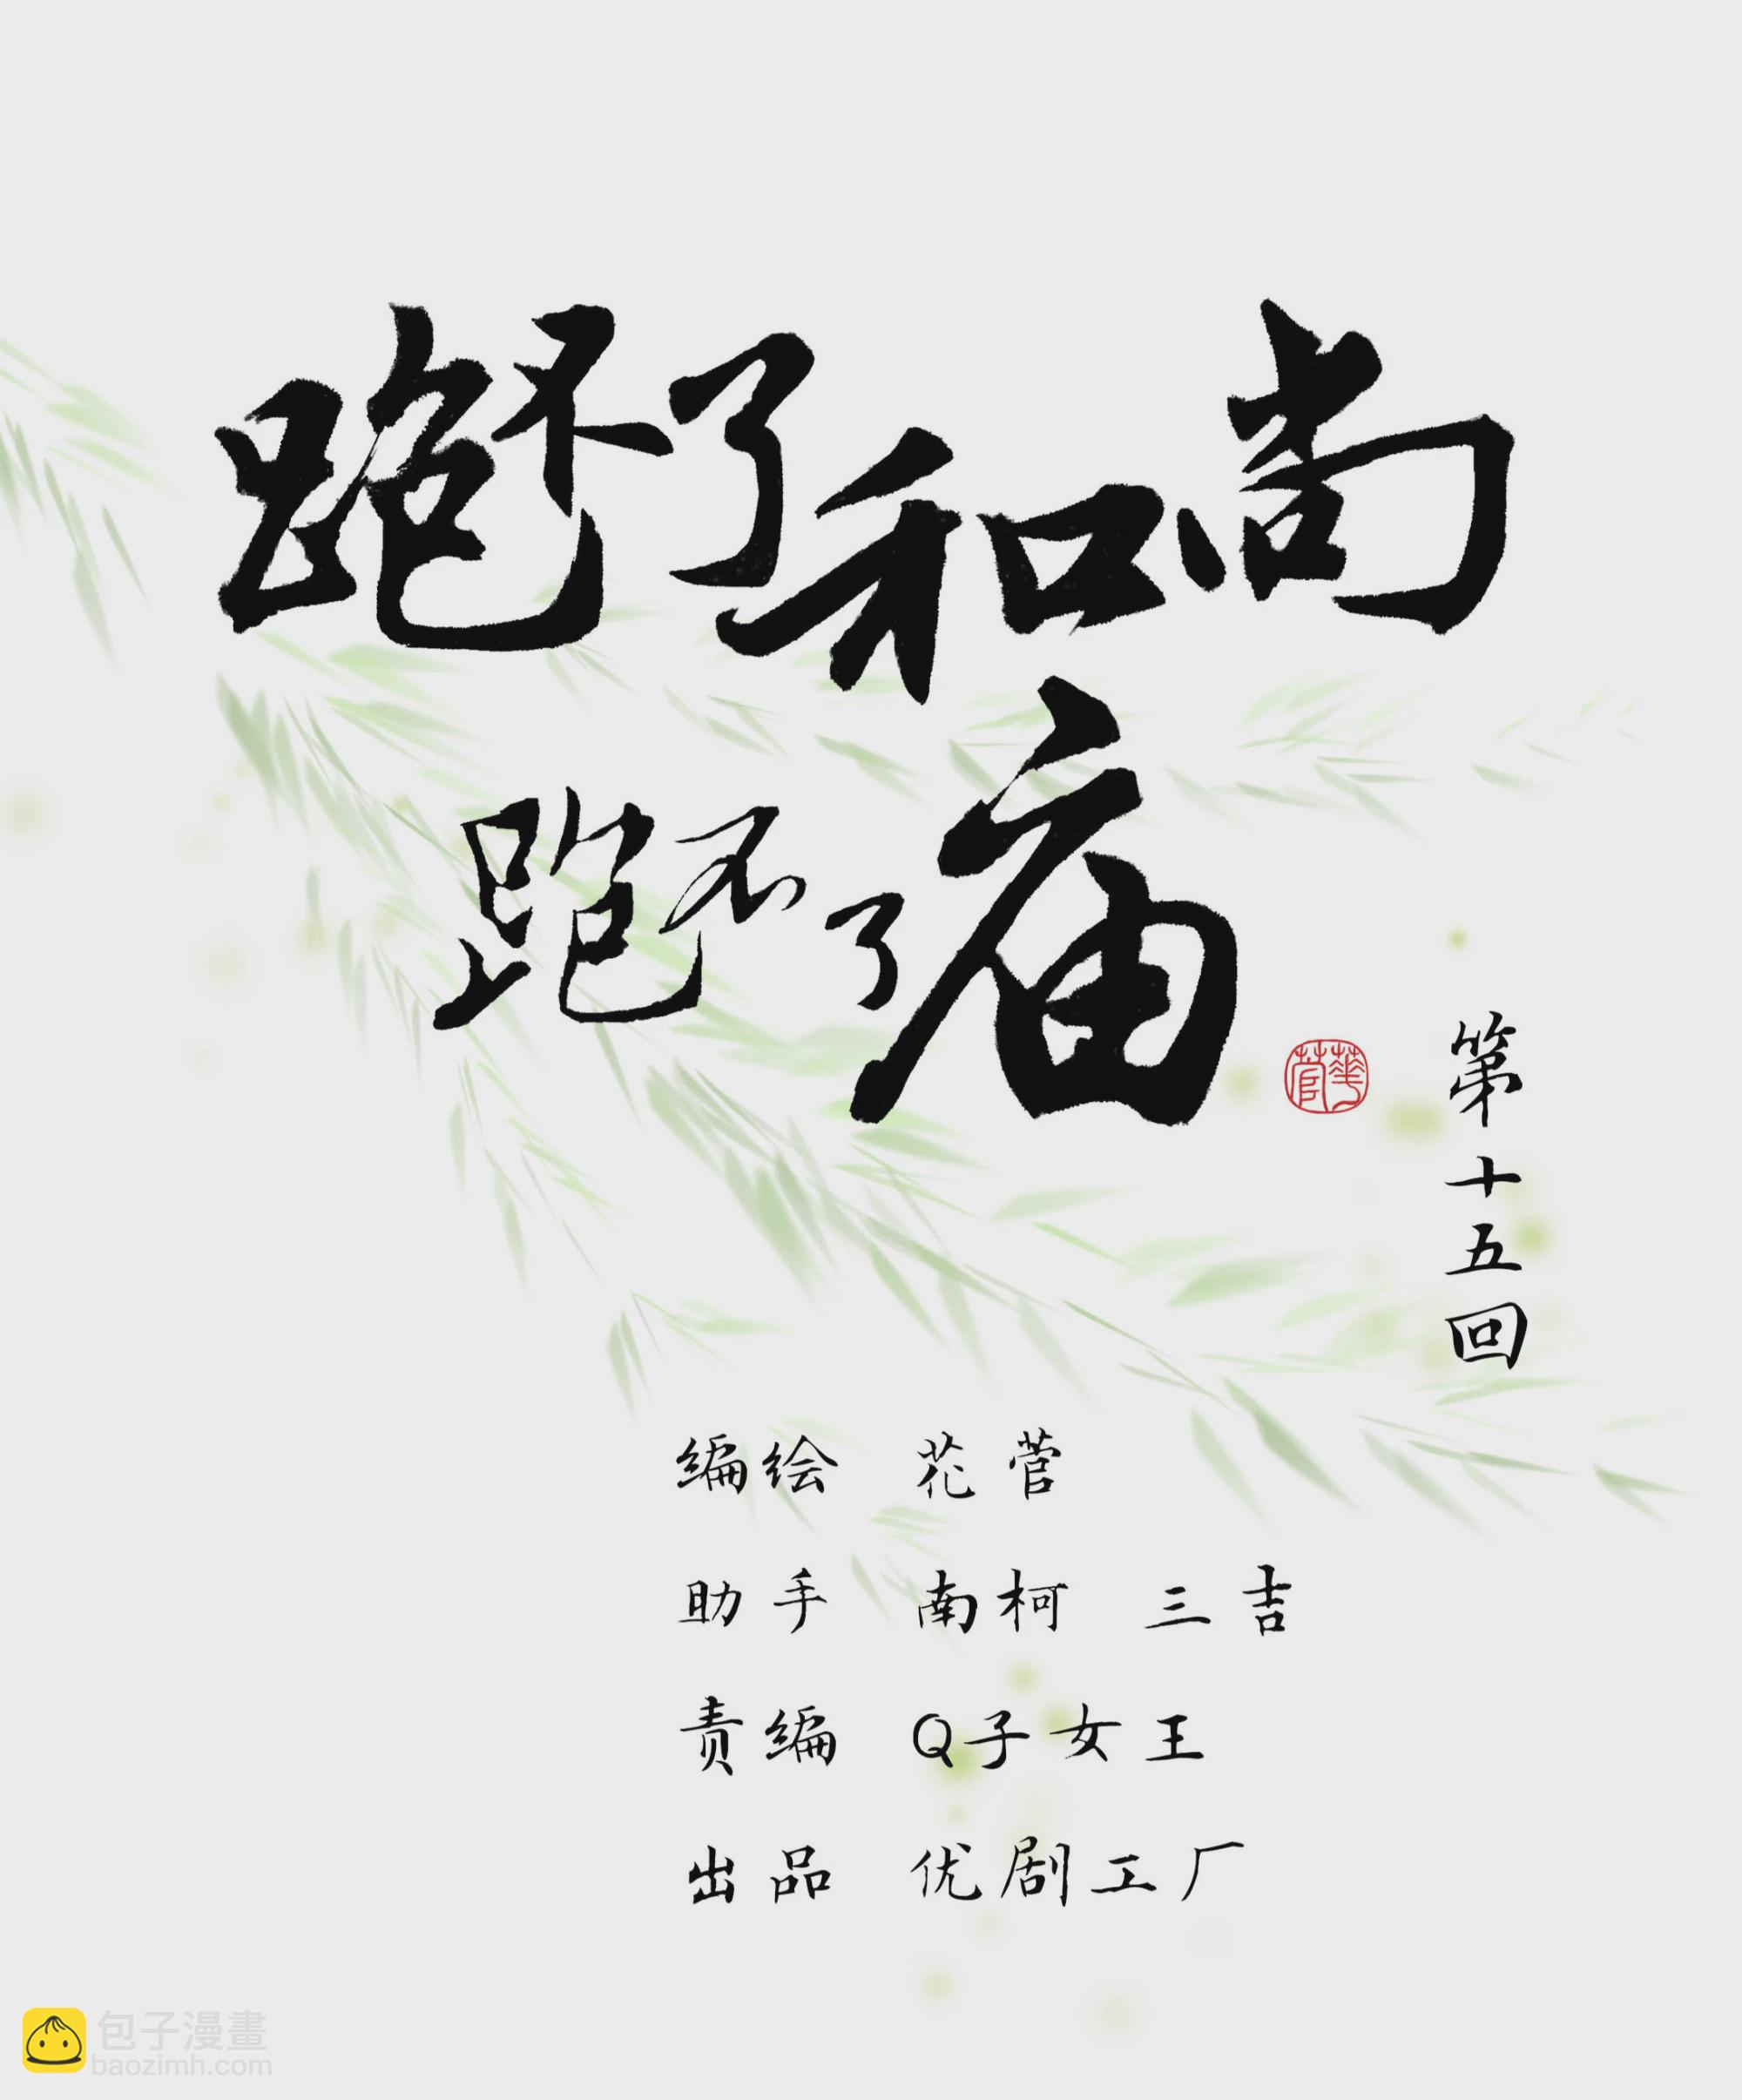 跑不了和尚
跑不了庙
華菅
第十五回
编绘 花菅
助手 南柯 三吉
责编 Q子女王
出品 优剧工厂
包子漫畫
baozimh.com